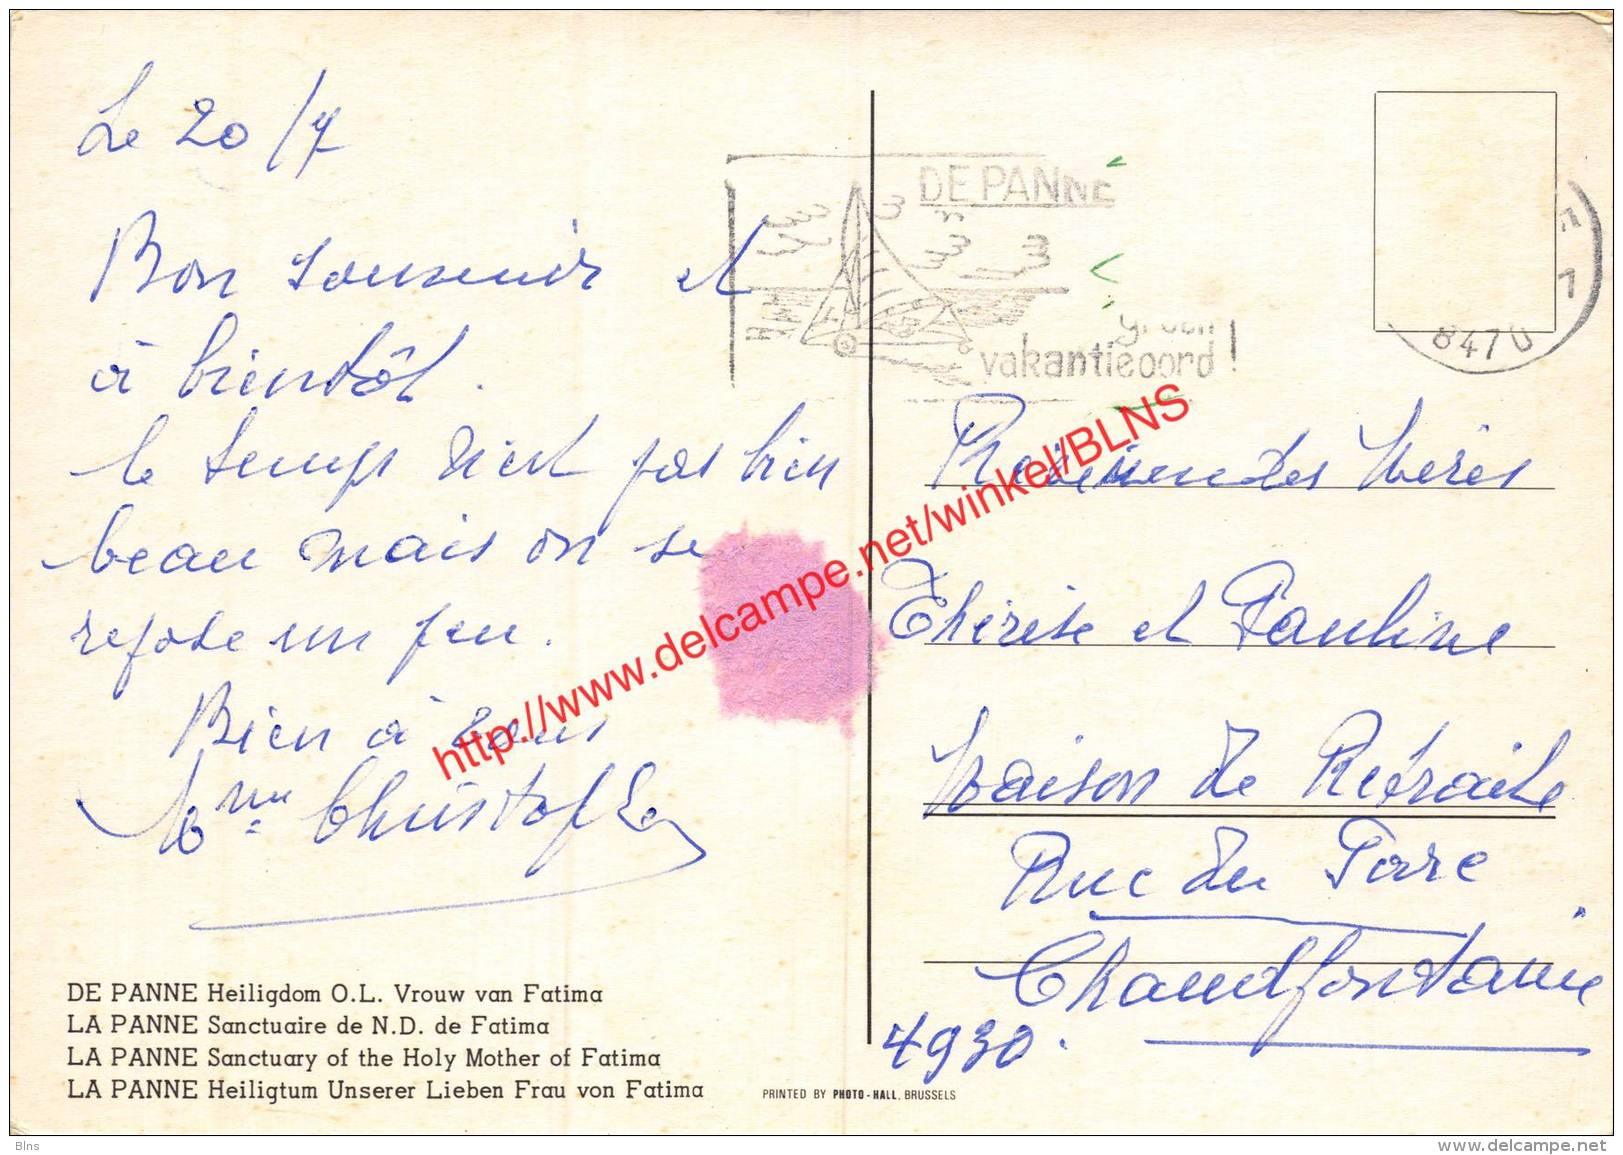 Le 20/7
Bon souvenir et
à bientôt.
le temps n'est pas bien
beau mais on se
repose un peu.
Bien à vous
Mme Christoffe
DE PANNE Heiligdom O.L. Vrouw van Fatima
LA PANNE Sanctuaire de N.D. de Fatima
LA PANNE Sanctuary of the Holy Mother of Fatima
LA PANNE Heiligtum Unserer Lieben Frau von Fatima
PRINTED BY PHOTO-HALL, BRUSSELS
DE PANNE
groen
vakantieoord!
8470
Révérendes Mères
Thérèse et Pauline
Maison de Retraite
Rue du Parc
Chaudfontaine
4930.
http://www.delcampe.net/winkel/BLNS
Blns
www.delcampe.net